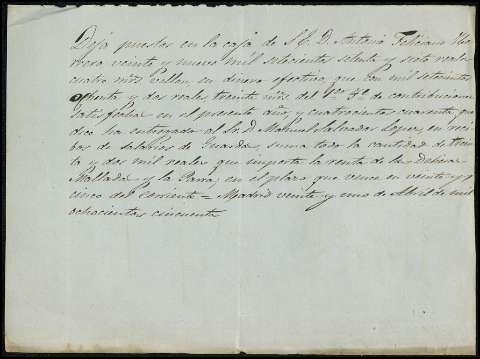 Deja puestos en la caja de S. E. D. Antonio Feliciano
rrera veinte y nueve mil setecientos setenta y siete reales
cuatro mrs. vellon en dinero efectivo que con mil setecientos
ochenta y dos reales treinta mrs. del 1er. 4o. de contribucion
satisfecha en el presente año, y cuatrocientos cuarenta que
dice ha entregado al Sr. D. Manuel Salvador Lopez, en reci-
bos de salarios de Guarda, suma todo la cantidad de trein
ta y dos mil reales que importa la renta de las Dehesas
Mallada y la Parra en el plazo que vence en veinte y
cinco del corriente = Madrid veinte y uno de Abril de mil
ochocientos cincuenta